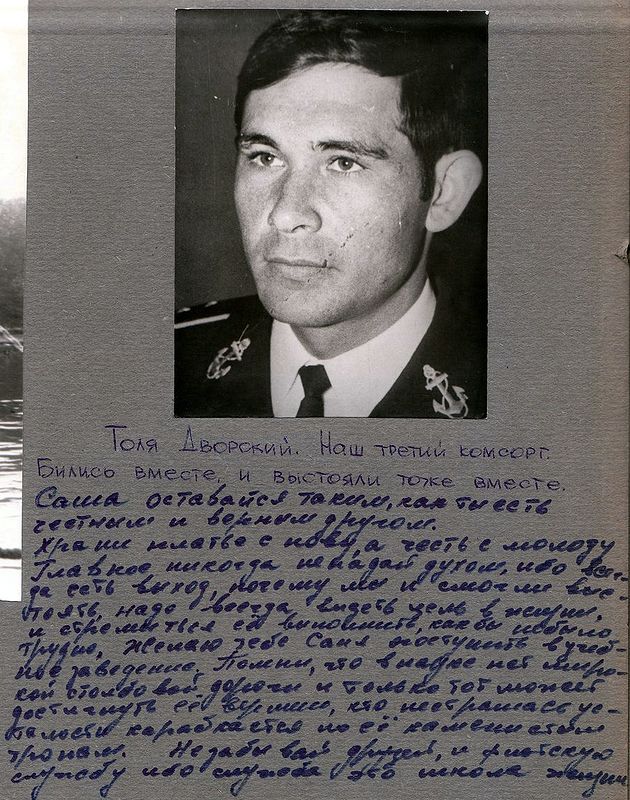 Толя Дворский. Наш третий комсорг.
Бились вместе, и выстояли тоже вместе.
Саша оставайся таким, как ты есть
честным и верным другом.
Храни платье с нову, а честь с молоду
Главное никогда не падай духом, ибо всег-
да есть выход, почему мы и смогли выс-
тоять, надо всегда видеть цель в жизни,
и стремиться её выполнить, как бы небыло
трудно, Желаю тебе Саня поступить в учеб-
ное заведение, Помни, что в науке нет широ-
кой столбовой дороги и только тот может
достигнуть её вершин, кто нестрашась ус-
талости карабкается по её каменистым
тропам. Не забывай друзей, и флотскую
службу ибо служба это школа жизни